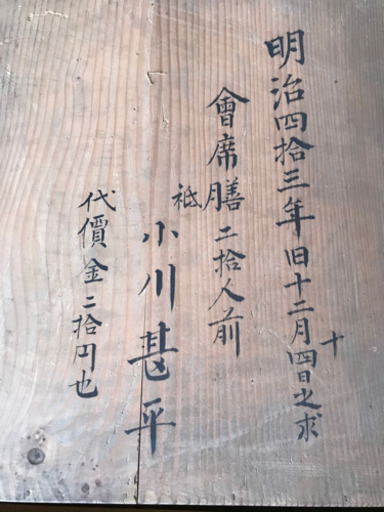 明治四拾三年旧十二月十四日之求
會席膳二拾人前
祗 小川甚平
代價金二拾円也